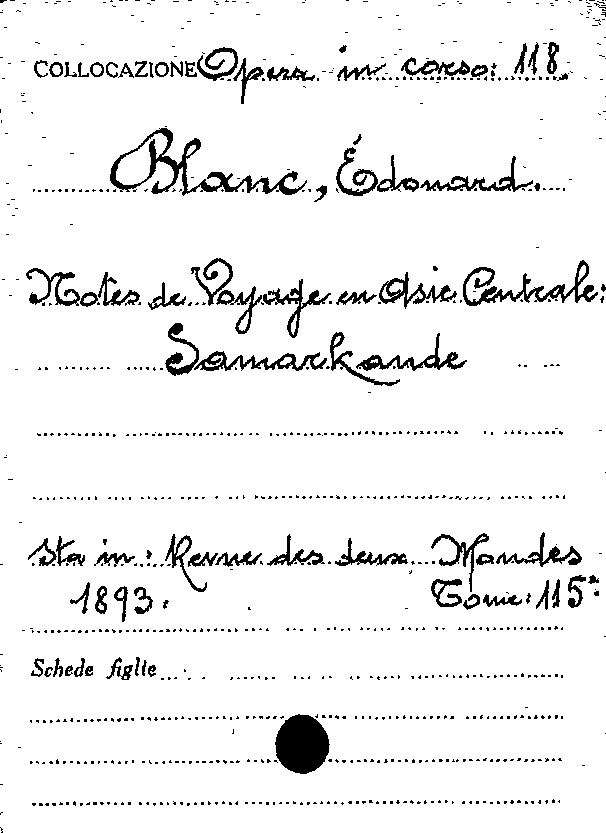 COLLOCAZIONE Opera in corso: 118.
Blanc, Édouard.
Notes de Voyage en Asie Centrale:
Samarkande
Sta in: Revue des deux Mondes
1893. Tome: 115°
Schede figlie